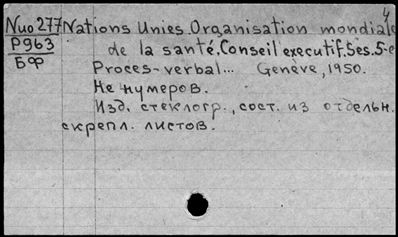 4
Nuo 277 Nations Unies. Organisation mondiale
P963 de la santé. Conseil executif. Ses. 5-e
БФ Proces-verbal... Genève, 1950.
Не нумеров.
Изд. стеклогр., сост. из отдельн.
скрепл. листов.